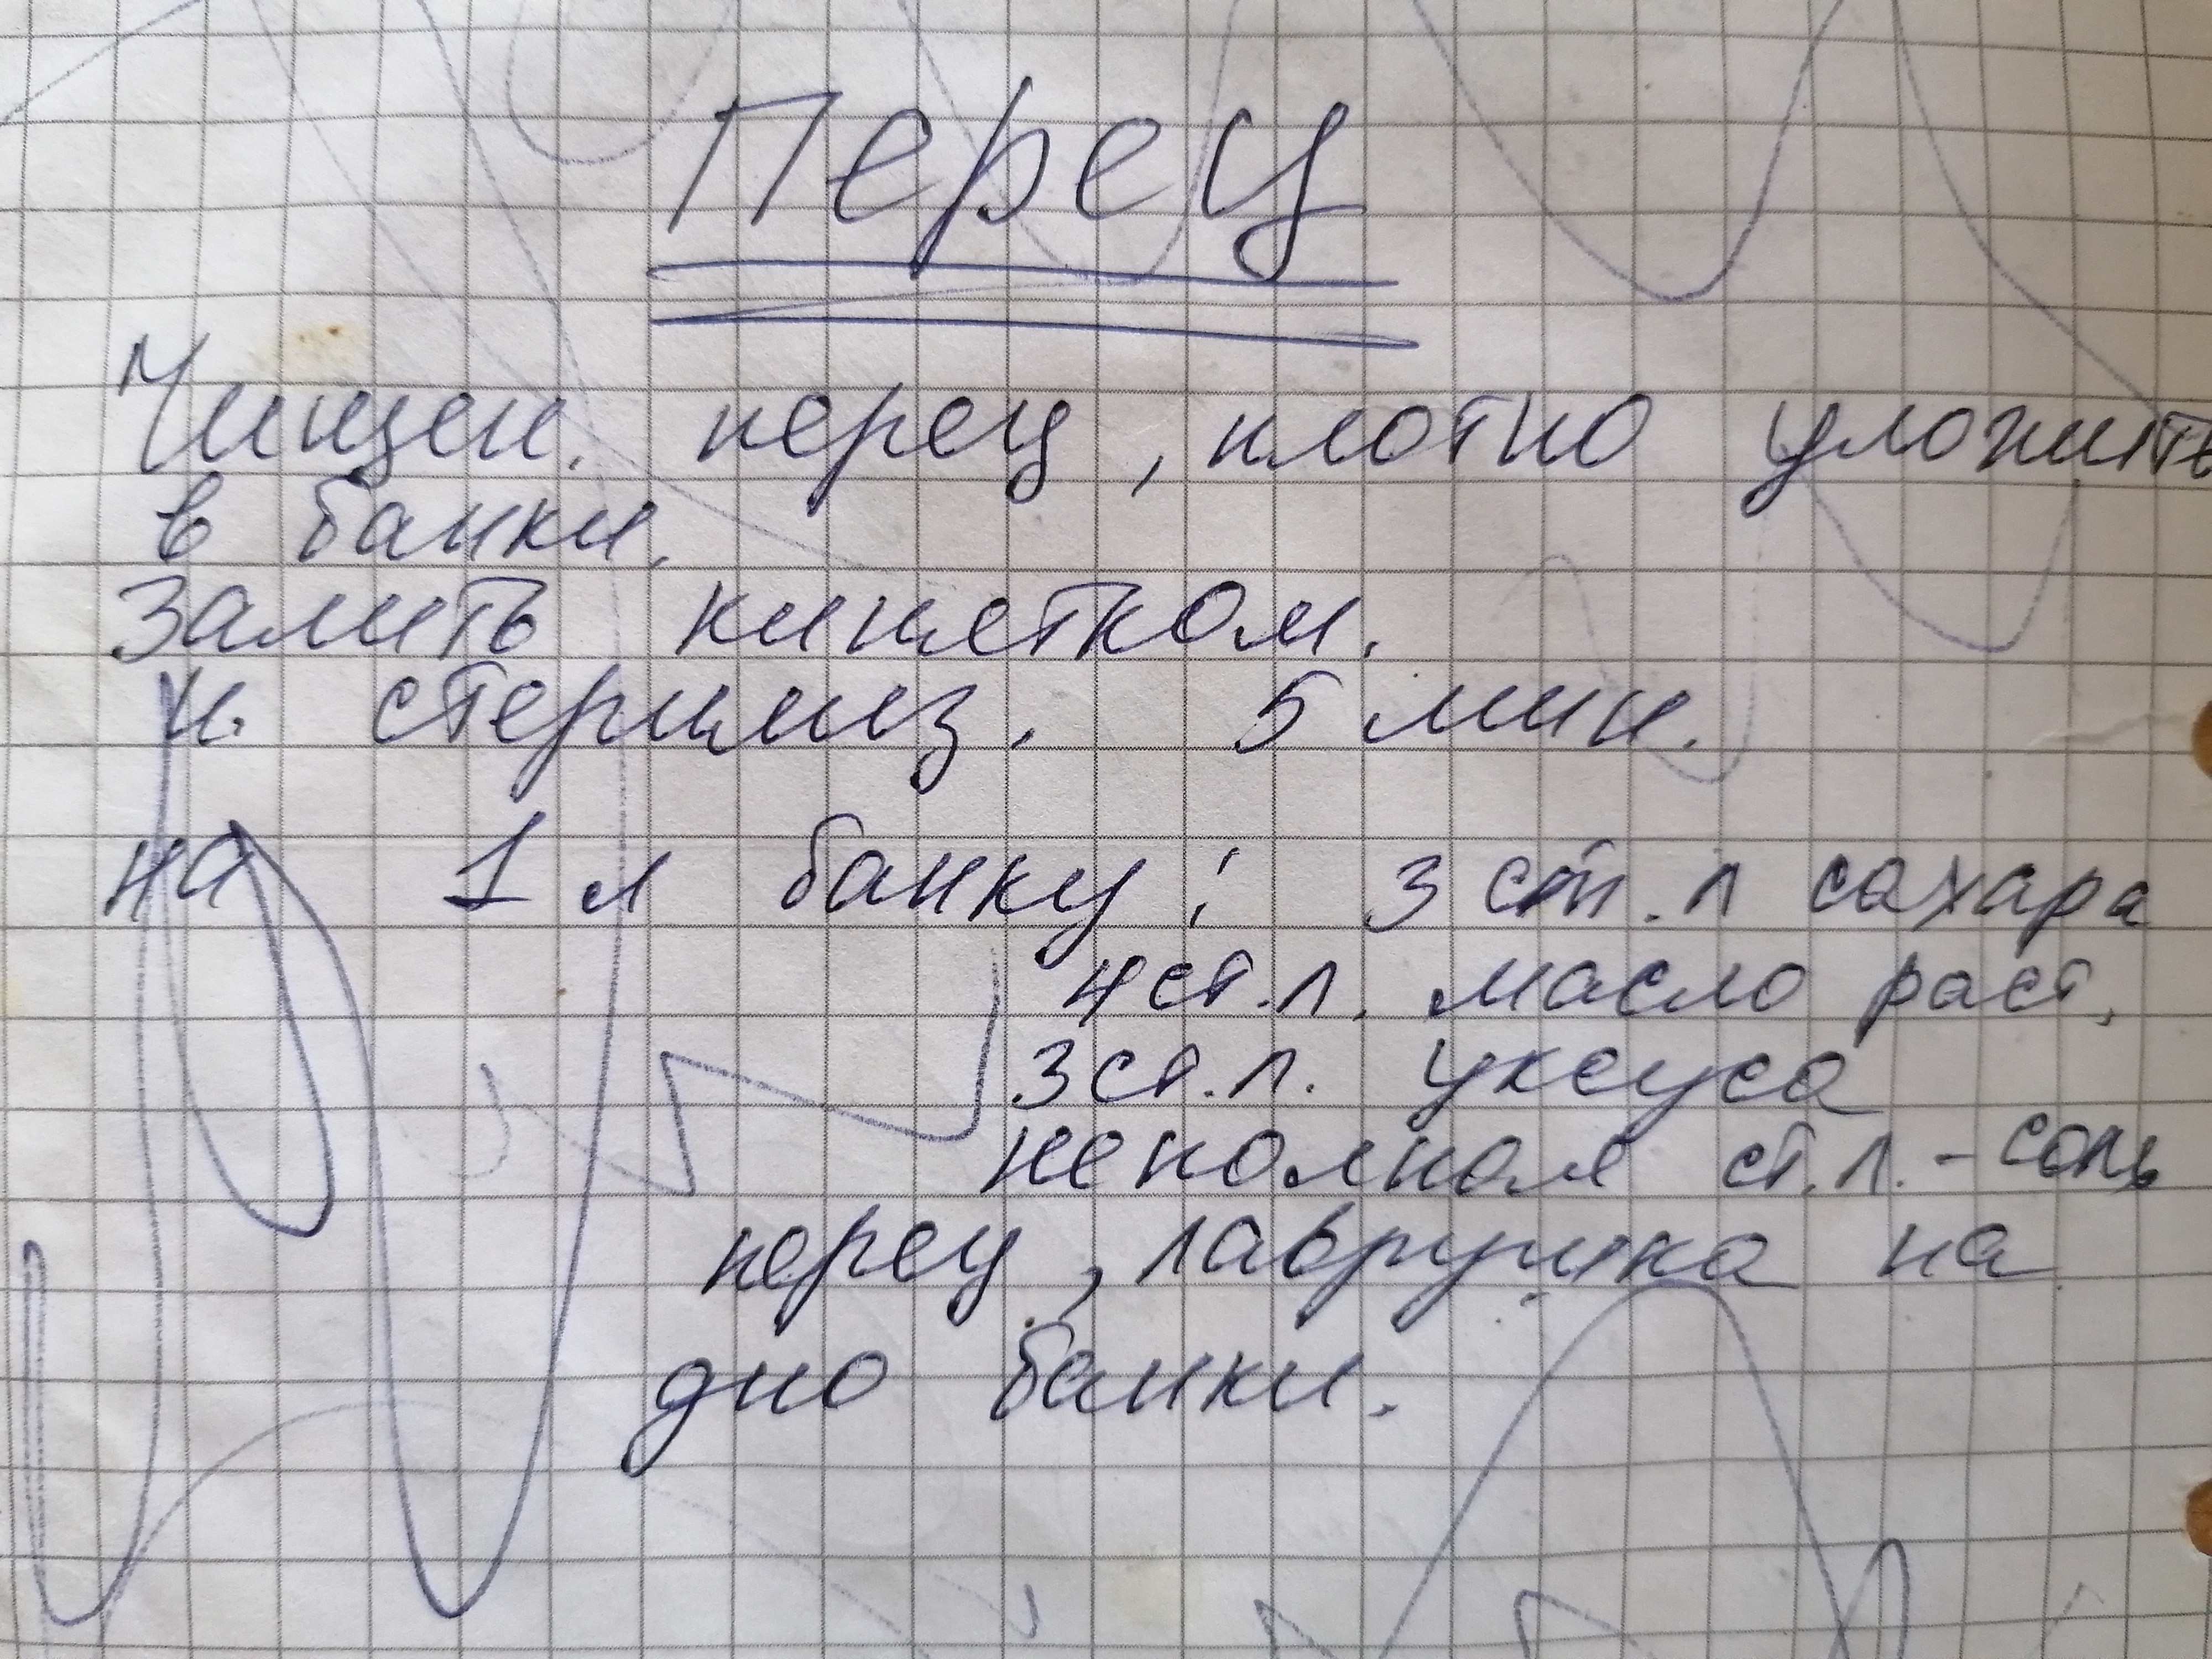 Перец
Чищен. перец, плотно уложить
в банки.
Залить кипятком.
и стерилиз. 5 мин.
на 1 л банку: 3 ст. л сахара
4 ст. л. масло раст.
3 ст. л. уксуса
неполная ст. л. - соль
перец, лаврушка на
дно банки.